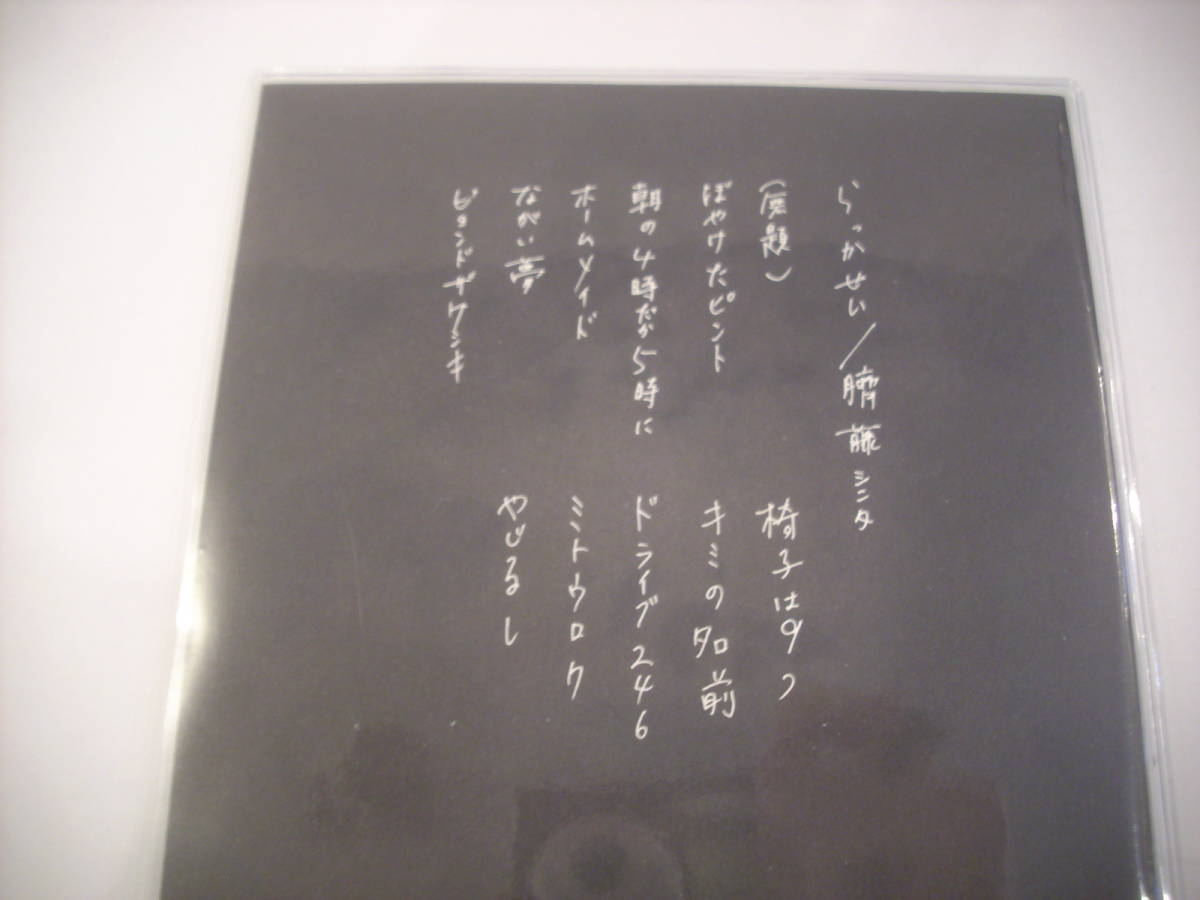 らっかせい／臍藤シニタ
(原題)
ぼやけたピント
朝の4時だか5時に
ホームメイド
ながい夢
ビヨンドザケシキ
椅子は9つ
キミの名前
ドライブ246
ミトウロク
やじるし